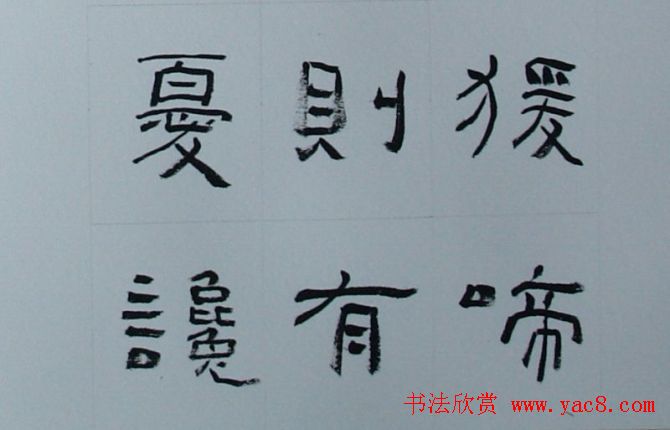 猨啼
則有
憂讒
书法欣赏 www.yac8.com